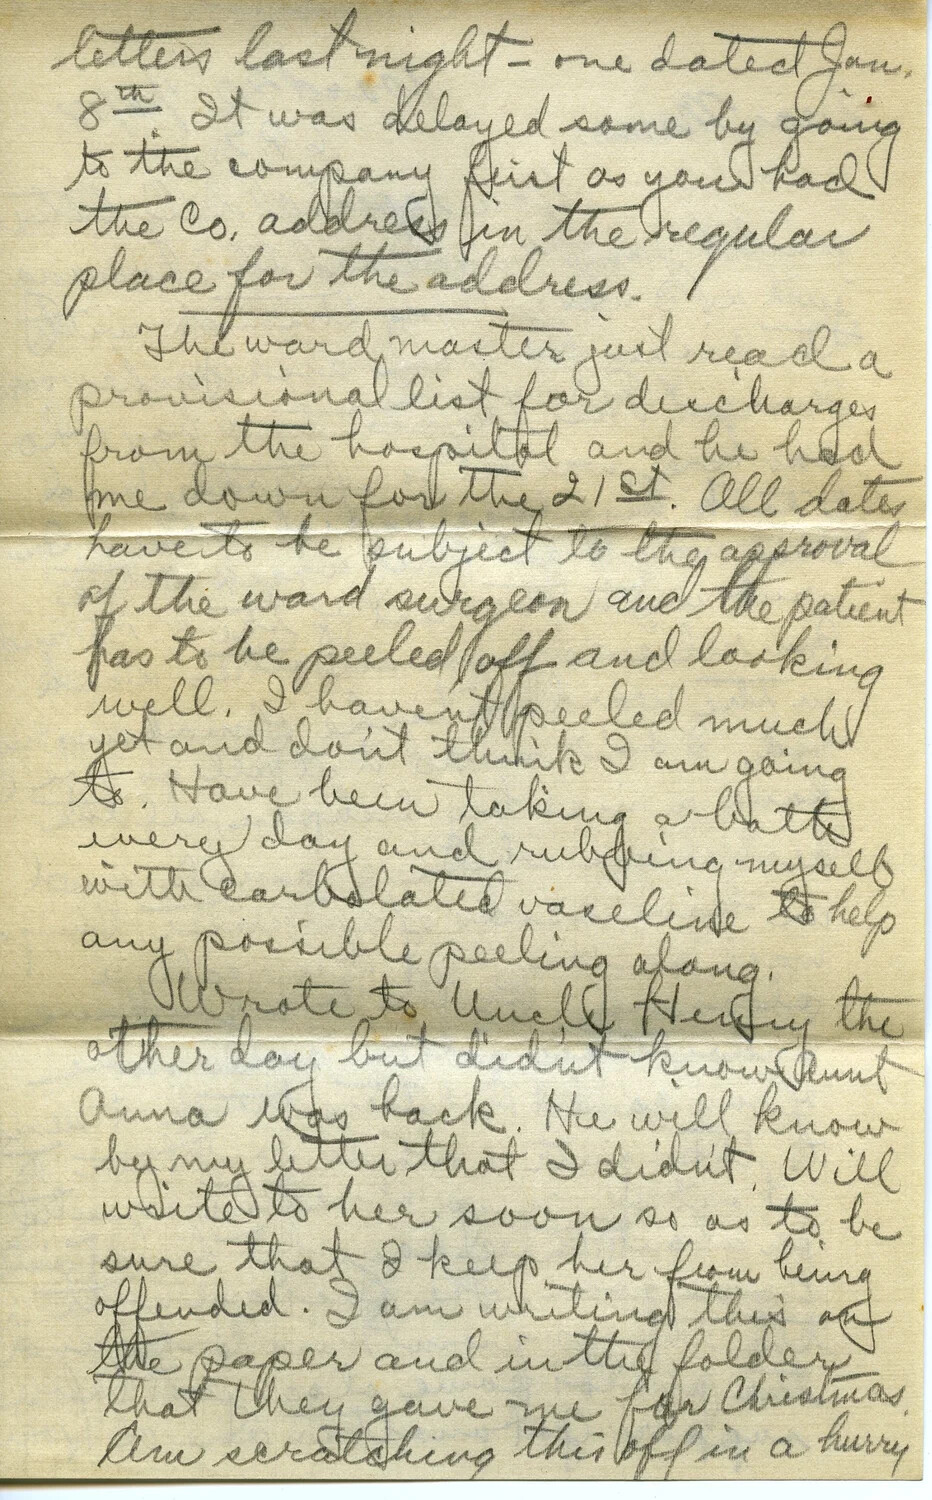 letters last night - one dated Jan.
8th. It was delayed some by going
to the company first as you had
the Co. address in the regular
place for the address.
The ward master just read a
provisional list for discharges
from the hospital and he had
me down for the 21st. All dates
have to be subject to the approval
of the ward surgeon and the patient
has to be peeled off and looking
well. I haven't peeled much
yet and don't think I am going
to. Have been taking a bath
every day and rubbing myself
with carbolated vaseline to help
any possible peeling along.
Wrote to Uncle Henry the
other day but didn't know Aunt
Anna was back. He will know
by my letter that I didn't. Will
write to her soon so as to be
sure that I keep her from being
offended. I am writing this on
the paper and in the folder
that they gave me for Christmas.
Am scratching this off in a hurry